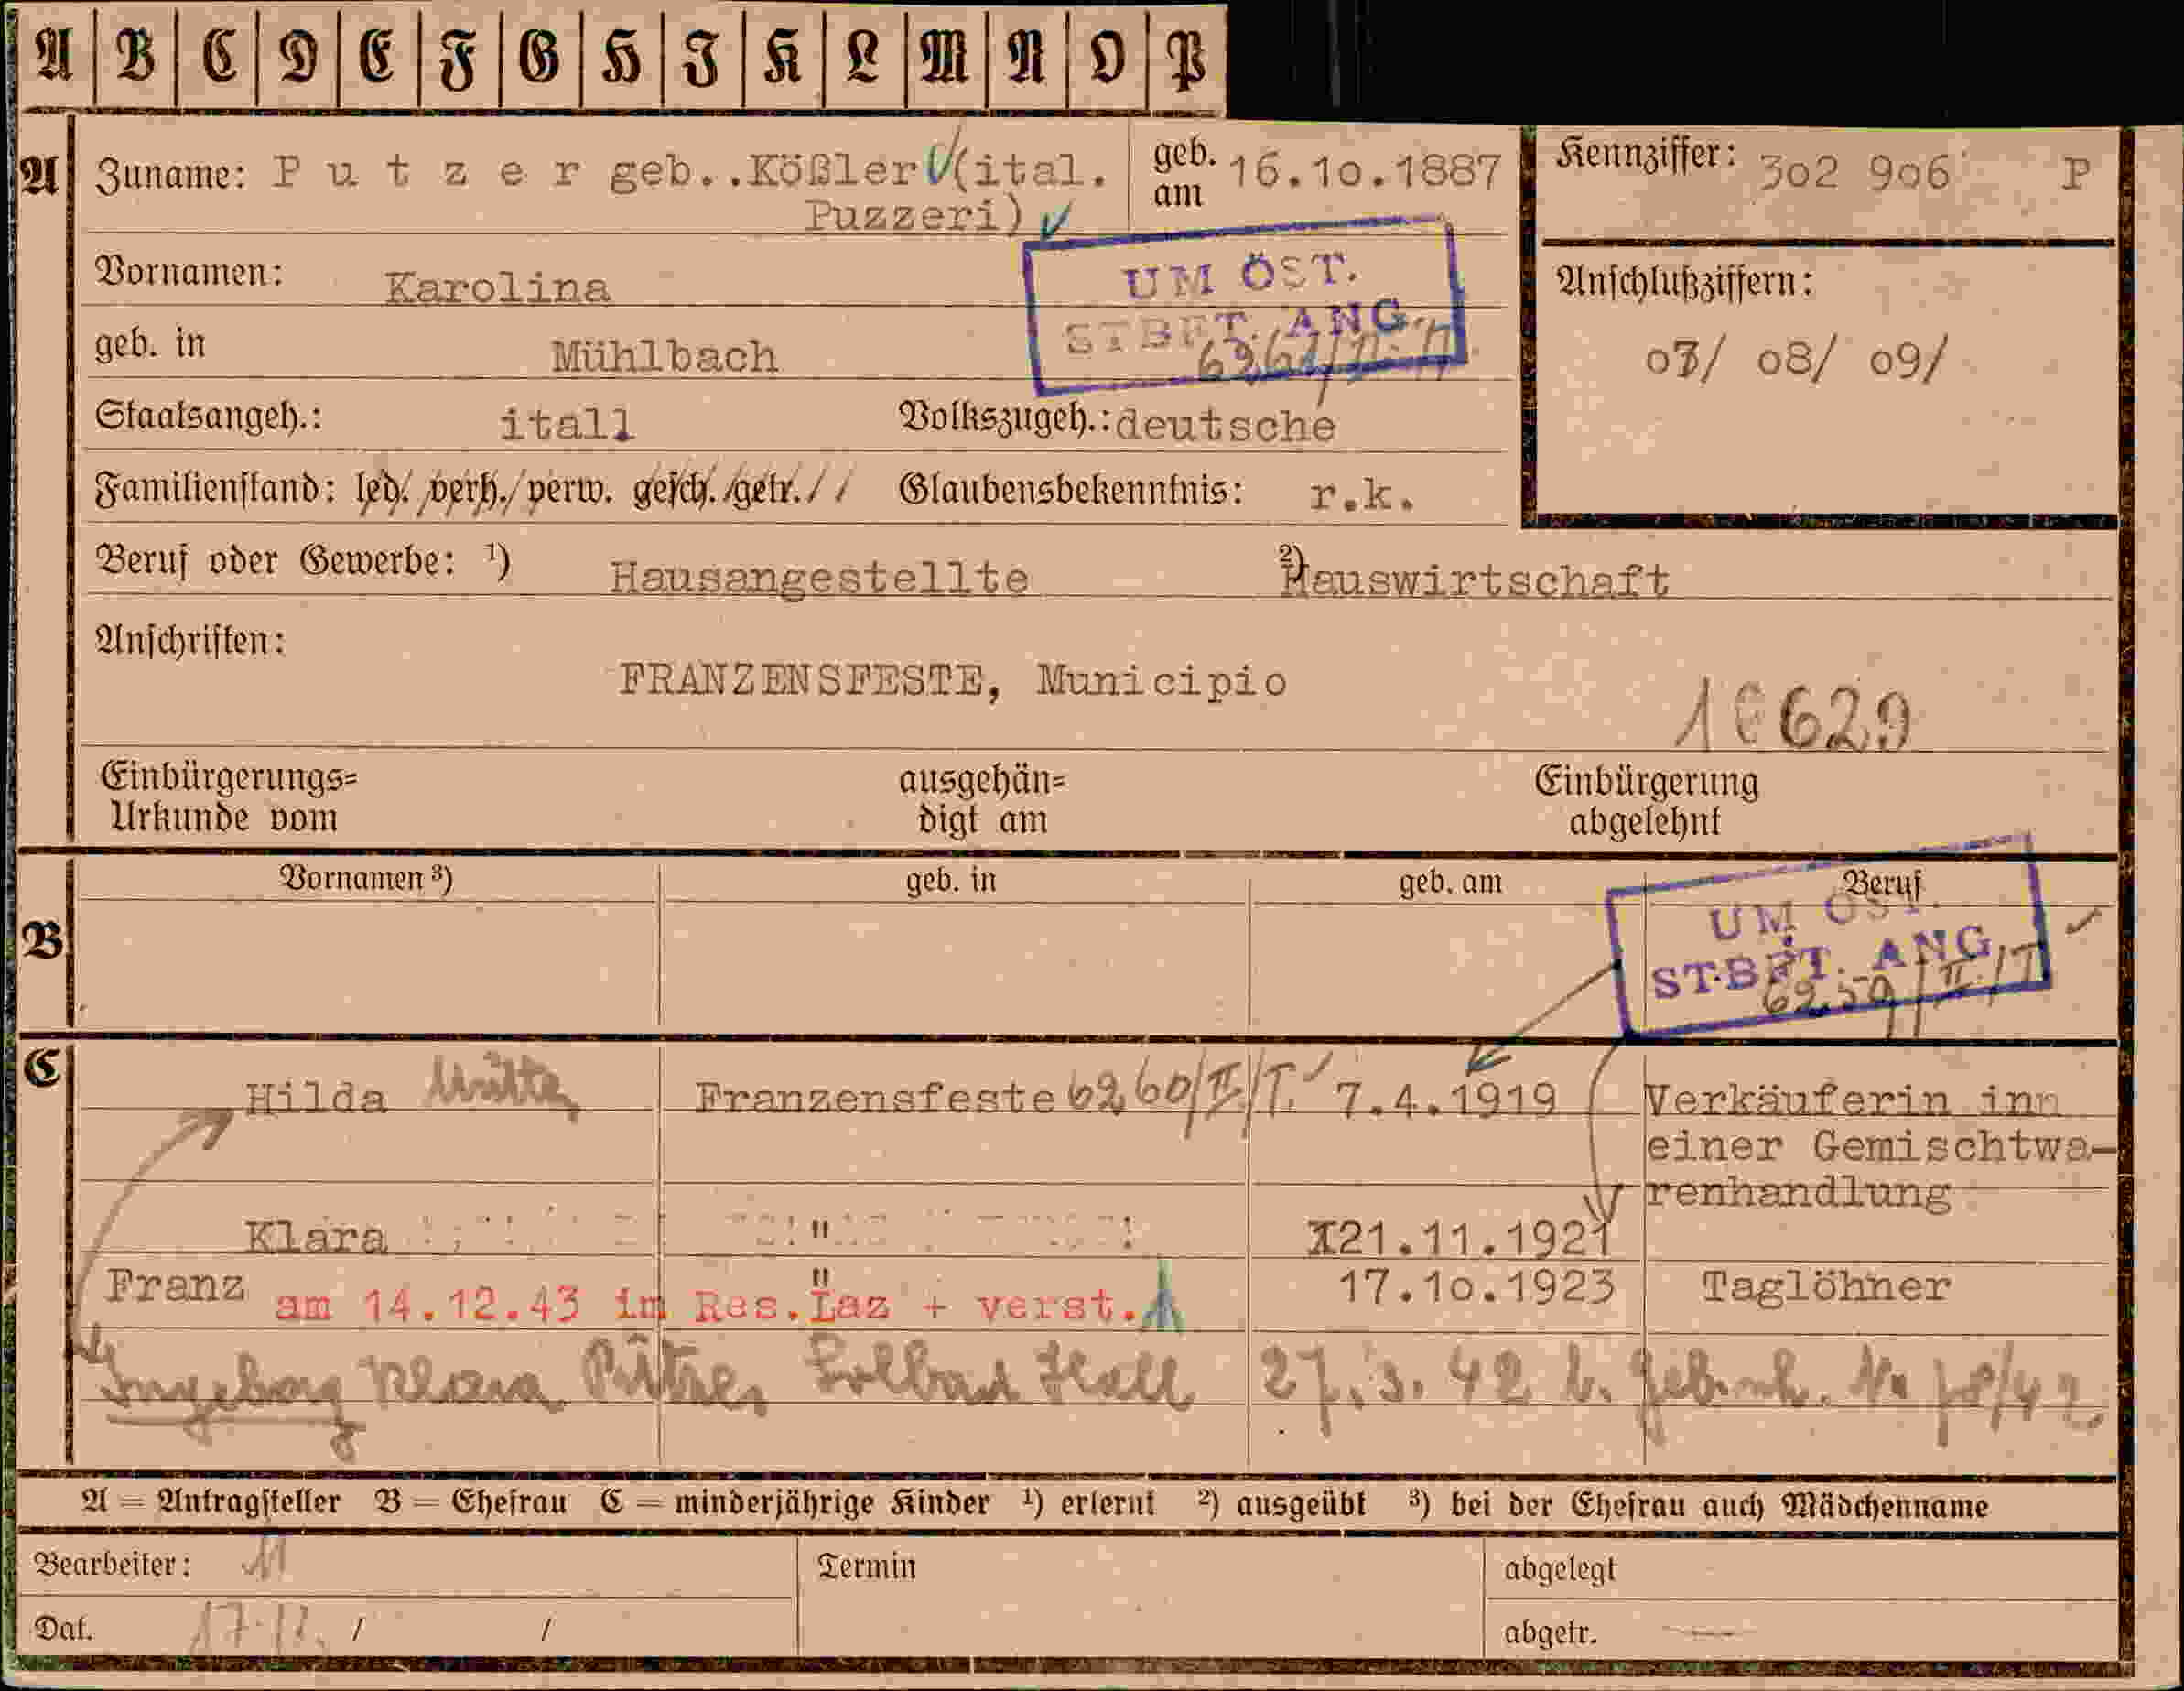 A B C D E F G H I K L M N O P
A Zuname: P u t z e r geb..Kößler (ital. geb. am 16.10.1887 Kennziffer: 3o2 9o6 P
Puzzeri)
UM ÖST.
STBFT. ANG.
Vornamen: Karolina Anschlußziffern:
geb. in Mühlbach o7/ o8/ o9/
Staatsangeh.: itall Volkszugeh.: deutsche
Familienstand: led./verh./verw. gesch./getr./ / Glaubensbekenntnis: r.k.
Beruf oder Gewerbe: ¹) Hausangestellte ²) Hauswirtschaft
Anschriften:
FRANZENSFESTE, Municipio
16629
Einbürgerungs= ausgehän= Einbürgerung
Urkunde vom digt am abgelehnt
B Vornamen ³) geb. in geb. am Beruf
UM ÖST.
STBFT. ANG.
6259/II/I
C Hilda Franzensfeste 6260/II/I. 7.4.1919 Verkäuferin inn
einer Gemischtwa-
renhandlung
Klara " 21.11.1921
Franz " 17.1o.1923 Taglöhner
am 14.12.43 im Res.Laz + verst.
Ingeborg Klara Solbad Hall 27.3.42
A = Antragsteller B = Ehefrau C = minderjährige Kinder ¹) erlernt ²) ausgeübt ³) bei der Ehefrau auch Mädchenname
Bearbeiter: Termin abgelegt
Dat. / / abgetr.